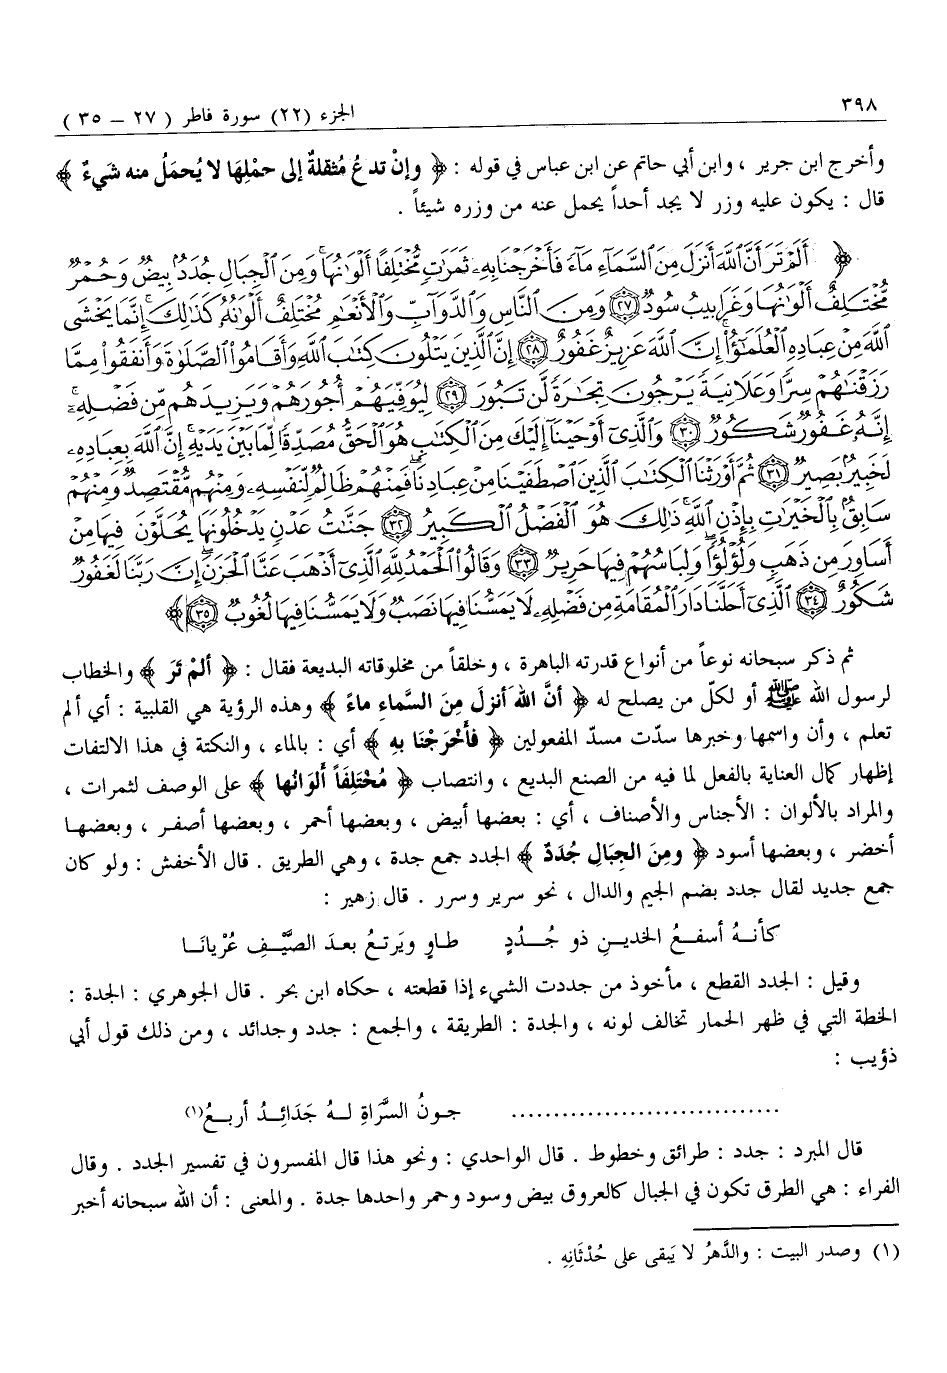 ٣٩٨
الجزء (٢٢) سورة فاطر ( ٢٧ – ٣٥ )
وأخرج ابن جرير ، وابن أبي حاتم عن ابن عباس في قوله : ﴿ وإنْ تدعُ مُثقلةٌ إلى حمْلِهَا لا يُحمَلُ منه شَيءٌ ﴾
قال : يكون عليه وزر لا يجد أحداً يحمل عنه من وزره شيئاً .
﴿ أَلَمْ تَرَ أَنَّ اللَّهَ أَنزَلَ مِنَ السَّمَاءِ مَاءً فَأَخْرَجْنَا بِهِ ثَمَرَٰتٍ مُّخْتَلِفًا أَلْوَٰنُهَا وَمِنَ الْجِبَالِ جُدَدٌ بِيضٌ وَحُمْرٌ
مُّخْتَلِفٌ أَلْوَٰنُهَا وَغَرَابِيبُ سُودٌ ﴿٢٧﴾ وَمِنَ النَّاسِ وَالدَّوَآبِّ وَالْأَنْعَٰمِ مُخْتَلِفٌ أَلْوَٰنُهُ كَذَٰلِكَ إِنَّمَا يَخْشَى
اللَّهَ مِنْ عِبَادِهِ الْعُلَمَٰٓؤُا إِنَّ اللَّهَ عَزِيزٌ غَفُورٌ ﴿٢٨﴾ إِنَّ الَّذِينَ يَتْلُونَ كِتَٰبَ اللَّهِ وَأَقَامُوا الصَّلَوٰةَ وَأَنفَقُوا مِمَّا
رَزَقْنَٰهُمْ سِرًّا وَعَلَانِيَةً يَرْجُونَ تِجَٰرَةً لَّن تَبُورَ ﴿٢٩﴾ لِيُوَفِّيَهُمْ أُجُورَهُمْ وَيَزِيدَهُم مِّن فَضْلِهِ
إِنَّهُ غَفُورٌ شَكُورٌ ﴿٣٠﴾ وَالَّذِي أَوْحَيْنَا إِلَيْكَ مِنَ الْكِتَٰبِ هُوَ الْحَقُّ مُصَدِّقًا لِّمَا بَيْنَ يَدَيْهِ إِنَّ اللَّهَ بِعِبَادِهِ
لَخَبِيرٌ بَصِيرٌ ﴿٣١﴾ ثُمَّ أَوْرَثْنَا الْكِتَٰبَ الَّذِينَ اصْطَفَيْنَا مِنْ عِبَادِنَا فَمِنْهُمْ ظَالِمٌ لِّنَفْسِهِ وَمِنْهُم مُّقْتَصِدٌ وَمِنْهُمْ
سَابِقٌ بِالْخَيْرَٰتِ بِإِذْنِ اللَّهِ ذَٰلِكَ هُوَ الْفَضْلُ الْكَبِيرُ ﴿٣٢﴾ جَنَّٰتُ عَدْنٍ يَدْخُلُونَهَا يُحَلَّوْنَ فِيهَا مِنْ
أَسَاوِرَ مِن ذَهَبٍ وَلُؤْلُؤًا وَلِبَاسُهُمْ فِيهَا حَرِيرٌ ﴿٣٣﴾ وَقَالُوا الْحَمْدُ لِلَّهِ الَّذِي أَذْهَبَ عَنَّا الْحَزَنَ إِنَّ رَبَّنَا لَغَفُورٌ
شَكُورٌ ﴿٣٤﴾ الَّذِي أَحَلَّنَا دَارَ الْمُقَامَةِ مِن فَضْلِهِ لَا يَمَسُّنَا فِيهَا نَصَبٌ وَلَا يَمَسُّنَا فِيهَا لُغُوبٌ ﴿٣٥﴾ ﴾
ثم ذكر سبحانه نوعاً من أنواع قدرته الباهرة ، وخلقاً من مخلوقاته البديعة فقال : ﴿ ألمْ تَرَ ﴾ والخطاب
لرسول الله ﷺ أو لكلّ من يصلح له ﴿ أنَّ اللهَ أنزلَ مِنَ السَّماءِ ماءً ﴾ وهذه الرؤية هي القلبية : أي ألم
تعلم ، وأن واسمها وخبرها سدّت مسدّ المفعولين ﴿ فأَخْرَجْنَا بهِ ﴾ أي : بالماء ، والنكتة في هذا الالتفات
إظهار كمال العناية بالفعل لما فيه من الصنع البديع ، وانتصاب ﴿ مُخْتَلِفَاً أَلوَانُها ﴾ على الوصف لثمرات ،
والمراد بالألوان : الأجناس والأصناف ، أي : بعضها أبيض ، وبعضها أحمر ، وبعضها أصفر ، وبعضها
أخضر ، وبعضها أسود ﴿ ومِنَ الجبَالِ جُدَدٌ ﴾ الجدد جمع جدة ، وهي الطريق . قال الأخفش : ولو كان
جمع جديد لقال جدد بضم الجيم والدال ، نحو سرير وسرر . قال زهير :
كأنـهُ أسفـعُ الخدينِ ذو جُــدُدٍ طـاوٍ ويَرتـعُ بعـدَ الصَّيْـفِ عُرْيانَـا
وقيل : الجدد القطع ، مأخوذ من جددت الشيء إذا قطعته ، حكاه ابن بحر . قال الجوهري : الجدة :
الخطة التي في ظهر الحمار تخالف لونه ، والجدة : الطريقة ، والجمع : جدد وجدائد ، ومن ذلك قول أبي
ذؤيب :
................................ جـونُ السَّرَاةِ لـهُ جَدَائِـدُ أربـعُ(١)
قال المبرد : جدد : طرائق وخطوط . قال الواحدي : ونحو هذا قال المفسرون في تفسير الجدد . وقال
الفراء : هي الطرق تكون في الجبال كالعروق بيض وسود وحمر واحدها جدة . والمعنى : أن الله سبحانه أخبر
(١) وصدر البيت : والدَّهرُ لا يَبقى على حُدْثَانِهِ .